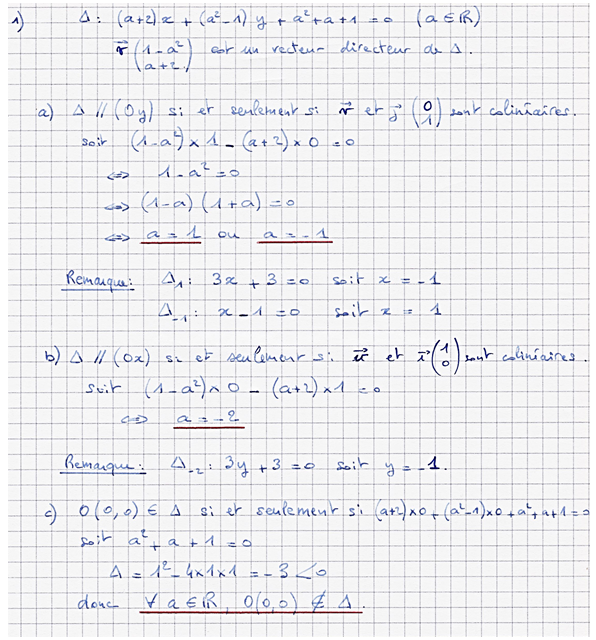 1) Δ : (a+2)x + (a²-1)y + a²+a+1 = 0 (a ∈ ℝ)
r⃗ (1-a² a+2) est un vecteur directeur de Δ.
a) Δ // (Oy) si et seulement si r⃗ et j⃗ (0 1) sont colinéaires.
soit (1-a²) × 1 - (a+2) × 0 = 0
⇔ 1-a² = 0
⇔ (1-a)(1+a) = 0
⇔ a = 1 ou a = -1
Remarque: Δ₁ : 3x + 3 = 0 soit x = -1
Δ₋₁ : x - 1 = 0 soit x = 1
b) Δ // (Ox) si et seulement si u⃗ et i⃗ (1 0) sont colinéaires.
soit (1-a²) × 0 - (a+2) × 1 = 0
⇔ a = -2
Remarque: Δ₋₂ : 3y + 3 = 0 soit y = -1.
c) O(0,0) ∈ Δ si et seulement si (a+2)×0 + (a²-1)×0 + a²+a+1 = 0
soit a² + a + 1 = 0
Δ = 1² - 4×1×1 = -3 < 0
donc ∀ a ∈ ℝ, O(0,0) ∉ Δ.